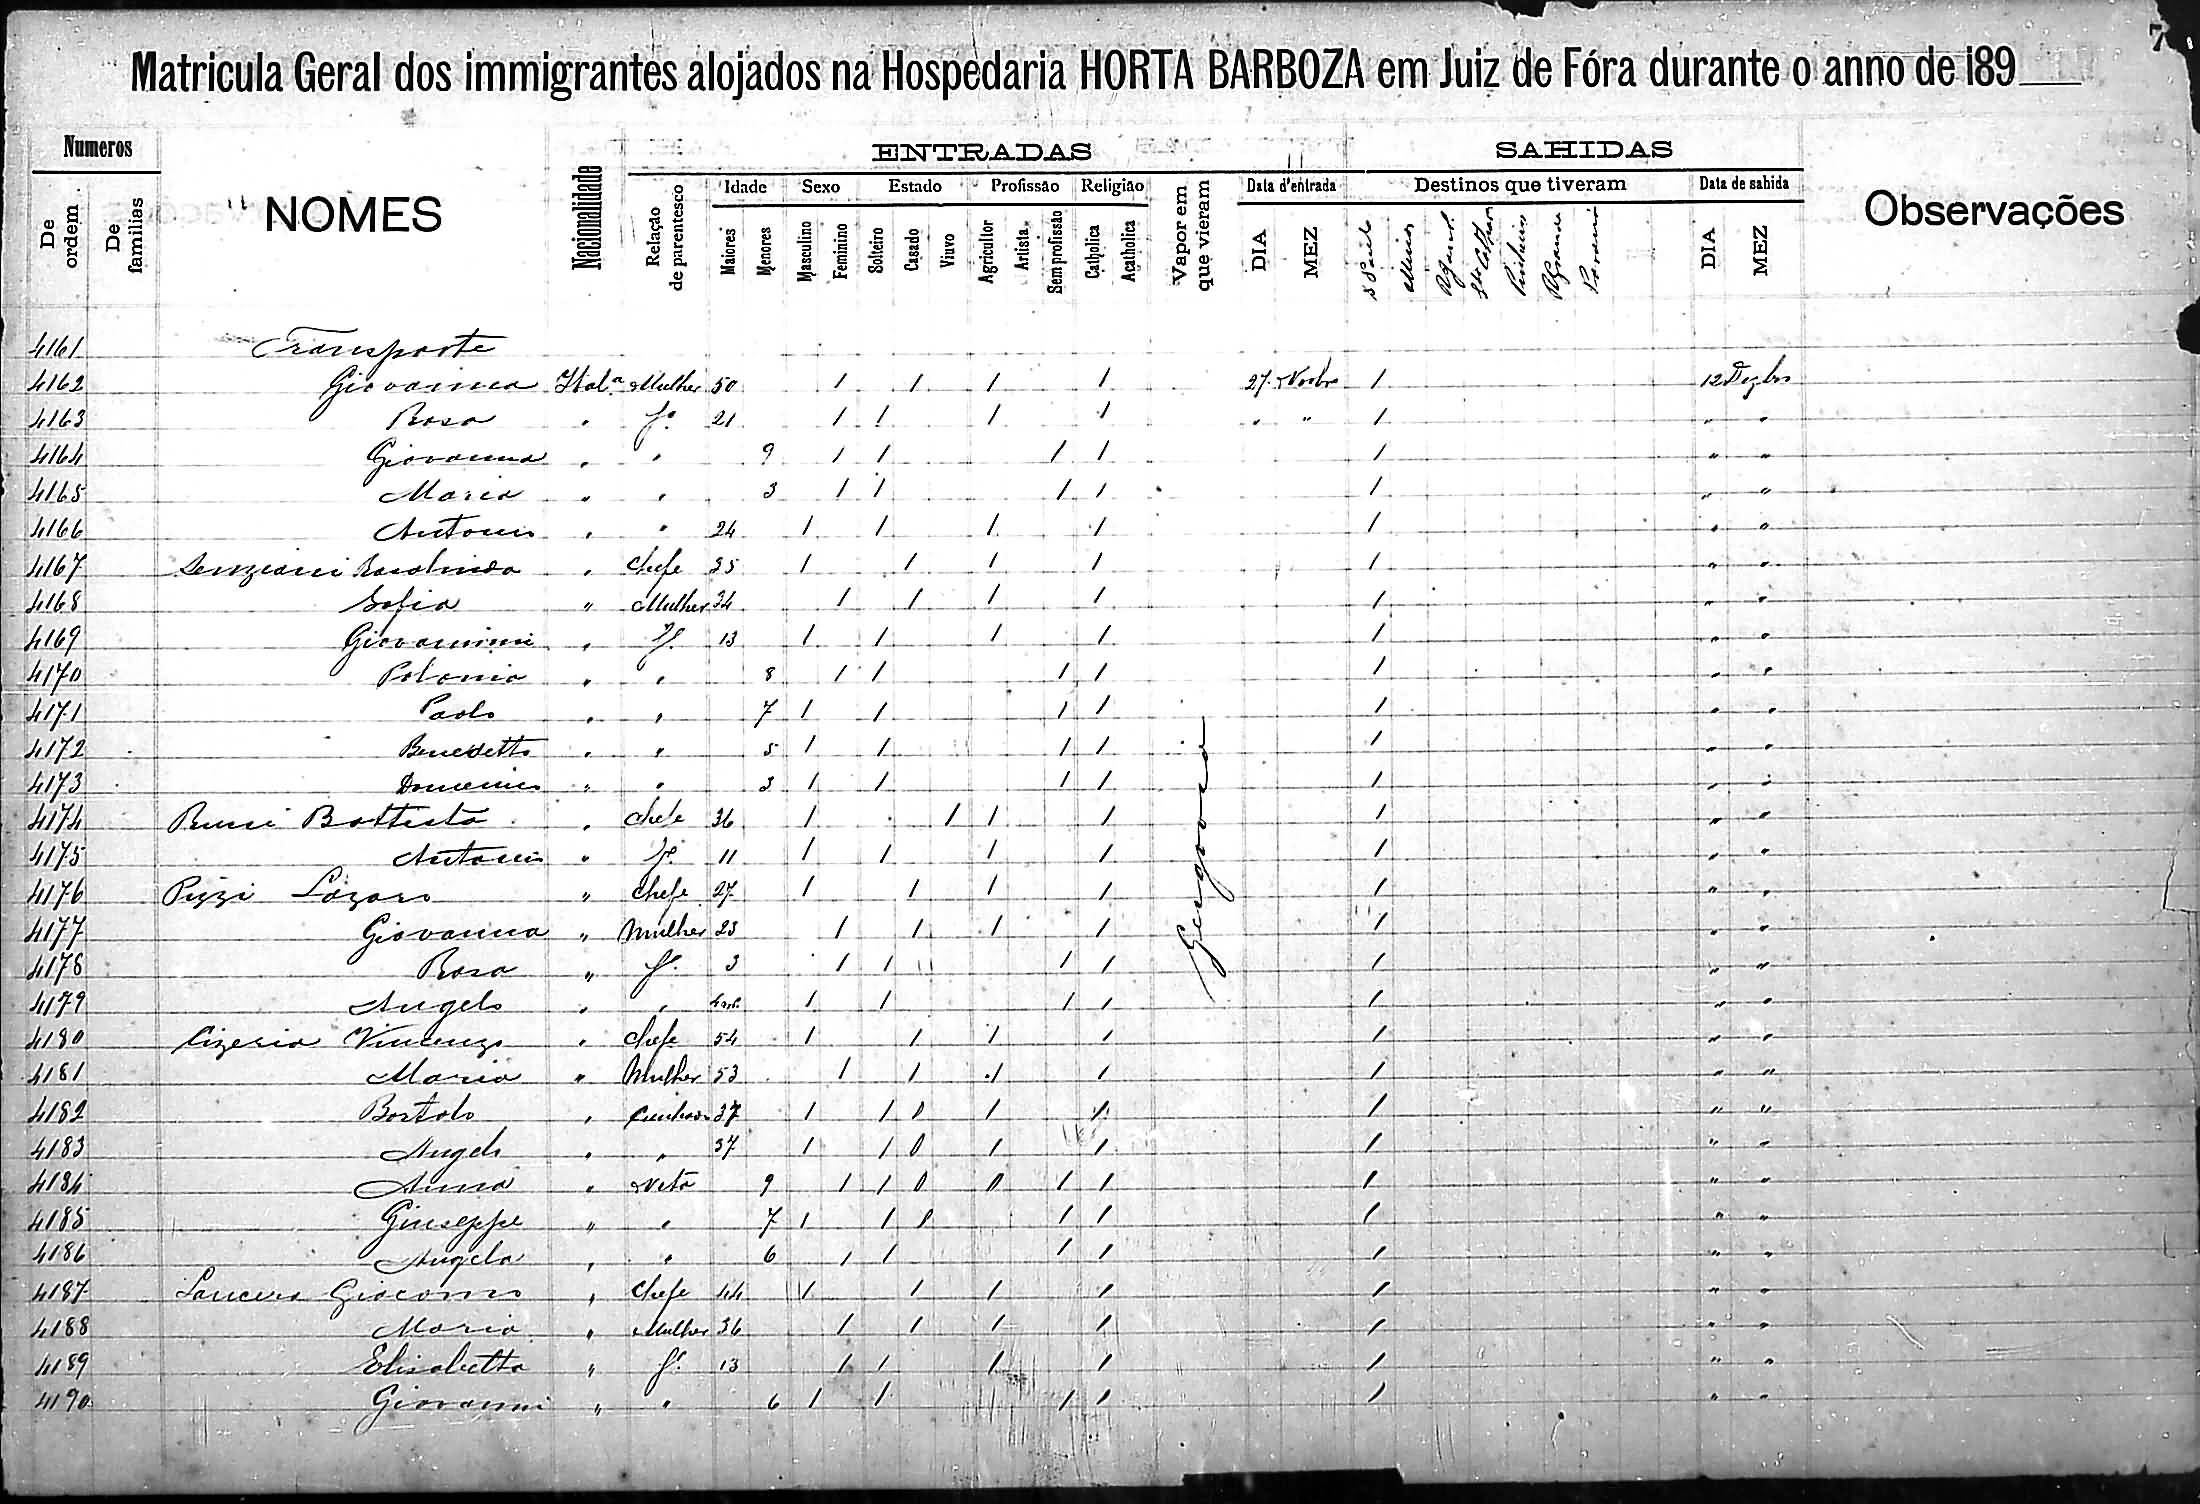 7
Matricula Geral dos immigrantes alojados na Hospedaria HORTA BARBOZA em Juiz de Fóra durante o anno de 189
Numeros
De ordem
De familias
NOMES
Nacionalidade
ENTRADAS
Relação de parentesco
Idade
Maiores
Menores
Sexo
Masculino
Feminino
Estado
Solteiro
Casado
Viuvo
Profissão
Agricultor
Artista
Sem profissão
Religião
Catholica
Acatholica
Vapor em que vieram
Data d'entrada
DIA
MEZ
SAHIDAS
Destinos que tiveram
S Paulo
Minas
Data de sahida
DIA
MEZ
Observações
4161 Transporte
4162 Giovanna Ital.ª Mulher 50 1 1 1 1 27 Novbro 1 12 Dezbro
4163 Rosa " fª 21 1 1 1 1 " " 1 " "
4164 Giovanna " " 9 1 1 1 1 1 " "
4165 Maria " " 3 1 1 1 1 1 " "
4166 Antonio " " 24 1 1 1 1 1 " "
4167 " Chefe 35 1 1 1 1 1 " "
4168 Sofia " Mulher 34 1 1 1 1 1 " "
4169 Giovannini " f. 13 1 1 1 1 1 " "
4170 Polonia " " 8 1 1 1 1 1 " "
4171 Paolo " " 7 1 1 1 1 1 " "
4172 Benedetto " " 5 1 1 1 1 1 " "
4173 Domenico " " 3 1 1 1 1 1 " "
4174 Battista " Chefe 36 1 1 1 1 1 " "
4175 Antonio " fº 11 1 1 1 1 1 " "
4176 Pizzi Lazaro " Chefe 27 1 1 1 1 1 " "
4177 Giovanna " Mulher 23 1 1 1 1 1 " "
4178 Rosa " fª 3 1 1 1 1 1 " "
4179 Angelo " " 1 1 1 1 1 " "
4180 Vincenzo " Chefe 54 1 1 1 1 1 " "
4181 Maria " Mulher 53 1 1 1 1 1 " "
4182 Bortolo " 37 1 1 1 1 1 " "
4183 Angelo " " 37 1 1 1 1 1 " "
4184 Anna " Neta 9 1 1 1 1 1 " "
4185 Giuseppe " " 7 1 1 1 1 1 " "
4186 Angela " " 6 1 1 1 1 1 " "
4187 Giacomo " Chefe 44 1 1 1 1 1 " "
4188 Maria " Mulher 36 1 1 1 1 1 " "
4189 Elisabetta " fª 13 1 1 1 1 1 " "
4190 Giovanni " " 6 1 1 1 1 1 " "